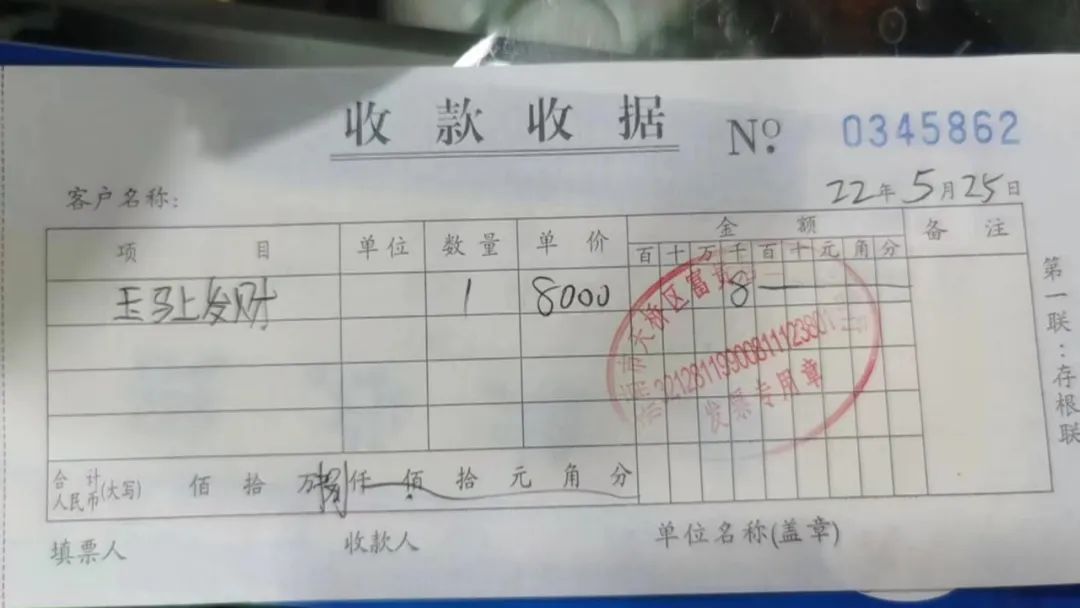 收款收据 Nº 0345862
客户名称: 22年5月25日
项目 单位 数量 单价 金额 备注
百十万千百十元角分
玉马上发财 1 8000 8
市 大桥区富
32128119900811123801
发票专用章
合计人民币(大写) 佰拾万捌仟佰拾元角分
填票人 收款人 单位名称(盖章)
第一联:存根联